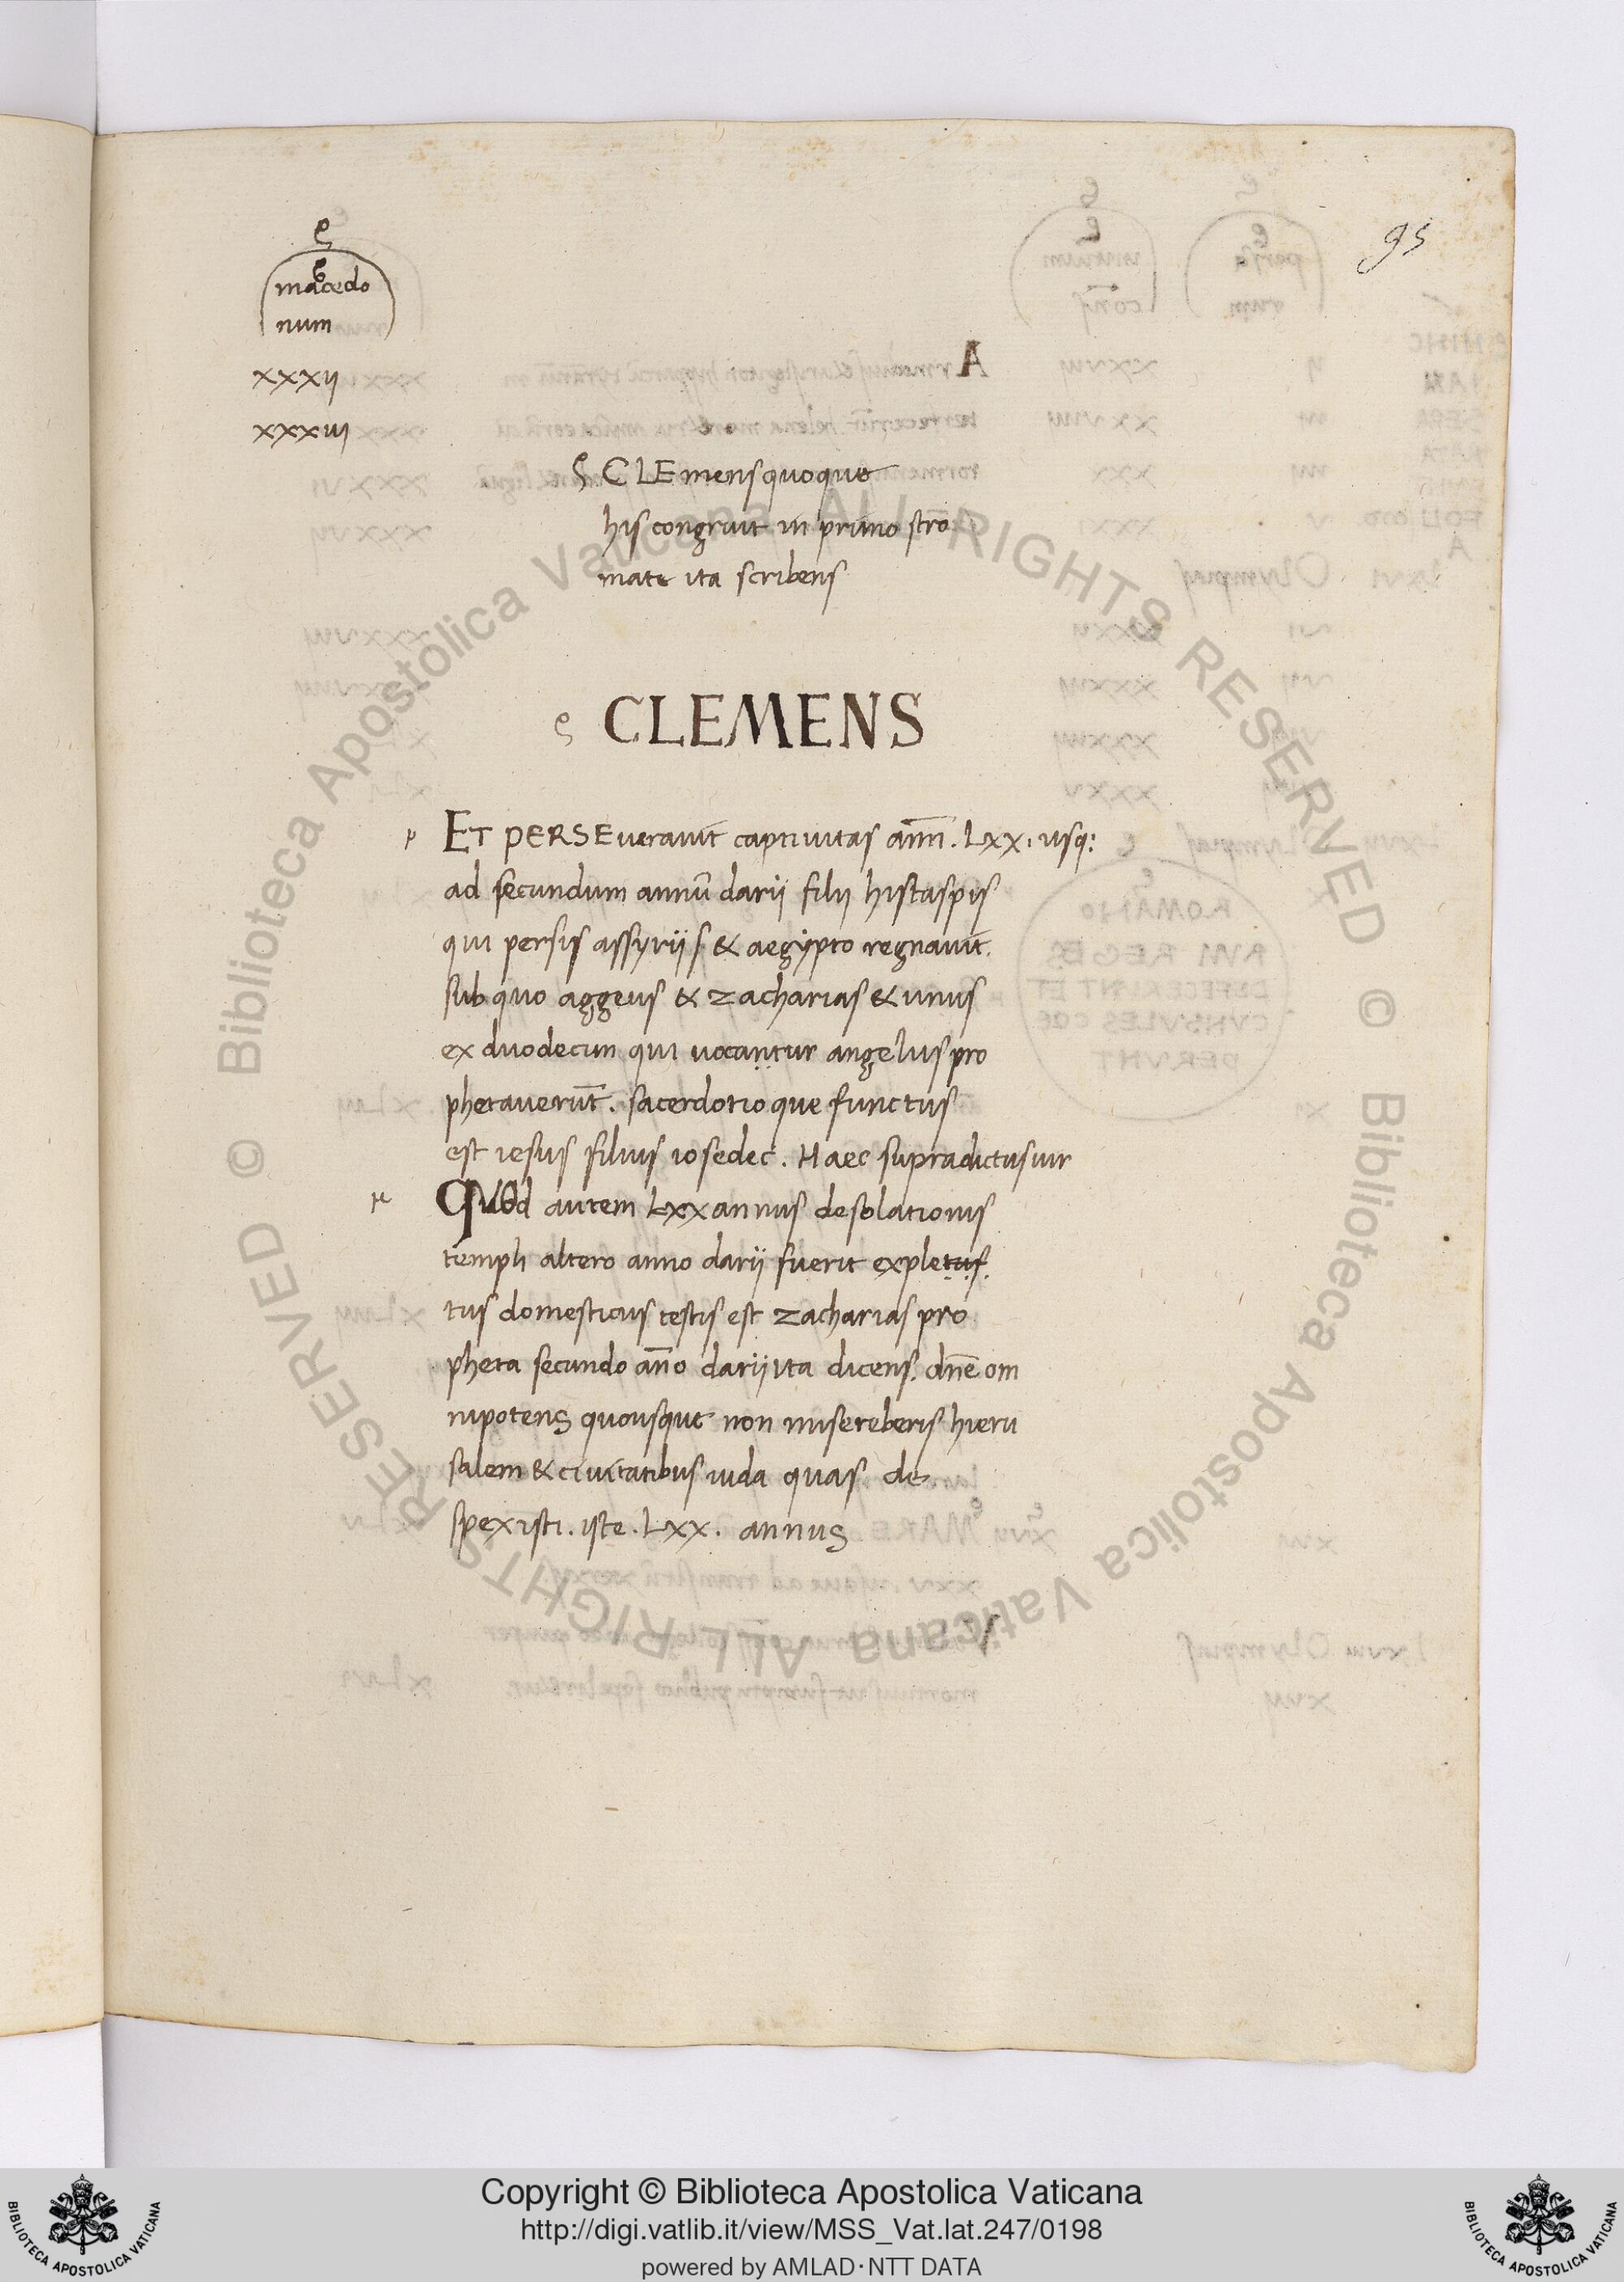 95
macedo
num
xxxij
xxxiij
CLEmens quoque
his congruit in primo stro
mate ita scribens
CLEMENS
ET PERSEveravit captivitas an̅n̅. Lxx. usq:
ad secundum annu̅ darij filij histaspis
qui persis assyrijs & aegypto regnavit.
sub quo aggeus & zacharias & unus
ex duodecim qui vocantur angelus pro
phetaveru̅t. sacerdotio que functus
est iesus filius iosedec. Haec supradictus vir
QUOd autem Lxx annus desolationis
templi altero anno darij fuerit expletus
tus domesticus testis est zacharias pro
pheta secundo an̅o darij ita dicens. dn̅e om
nipotens quousque non misereberis hieru
salem & civitatibus iuda quas de
spexisti. iste. Lxx. annus
© Biblioteca Apostolica Vaticana ALL RIGHTS RESERVED © Biblioteca Apostolica Vaticana ALL RIGHTS RESERVED
Copyright © Biblioteca Apostolica Vaticana
http://digi.vatlib.it/view/MSS_Vat.lat.247/0198
powered by AMLAD·NTT DATA
BIBLIOTECA APOSTOLICA VATICANA
BIBLIOTECA APOSTOLICA VATICANA